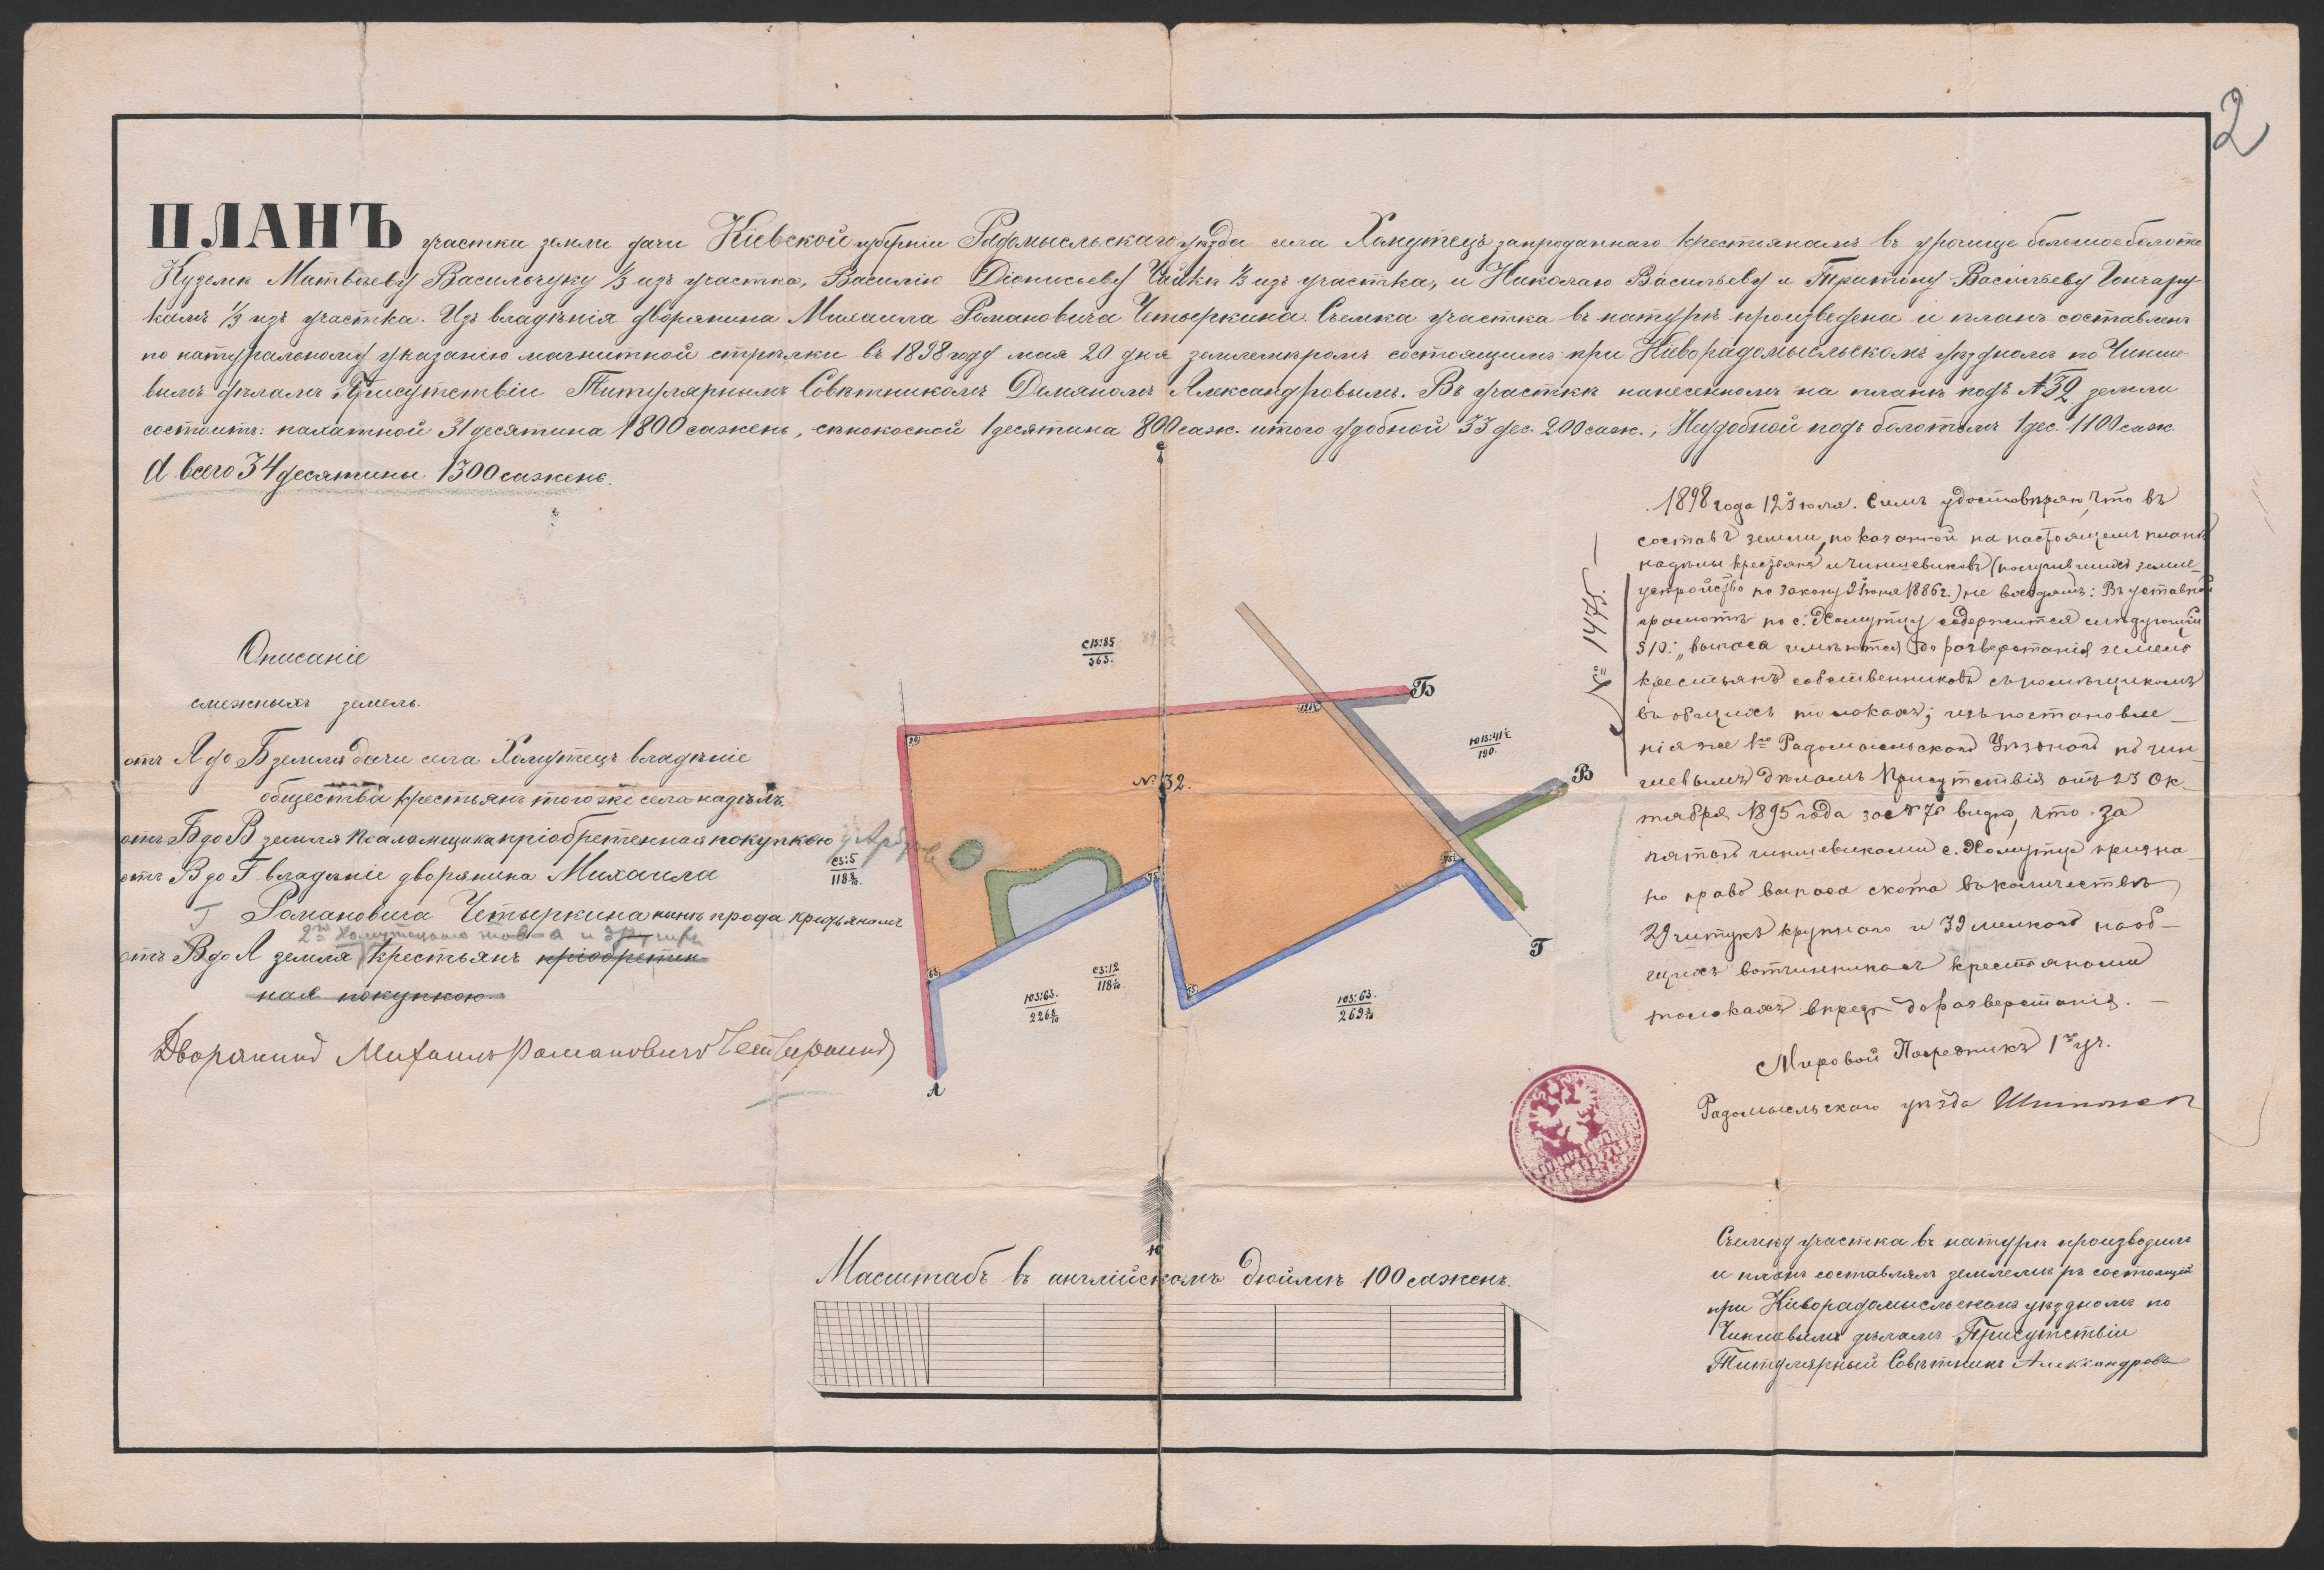 2
ПЛАНЪ участка земли дачи Кіевской губерніи Радомысльскаго уѣзда села Хомутецъ запроданнаго крестьянамъ въ урочище большое болото
Кузьмѣ Матвѣеву Васильчуку ⅓ изъ участка, Василію Діонисьеву Чайкѣ ⅓ изъ участка, и Николаю Васильеву и Васильеву Гончару-
камъ ⅓ изъ участка. Изъ владѣнія дворянина Михаила Романовича Четыркина. Съемка участка въ натурѣ произведена и планъ составленъ
по натуральному указанію магнитной стрѣлки въ 1898 году мая 20 дня землемѣромъ состоящимъ при Кіеворадомысльскомъ уѣздномъ по Чинше-
вымъ дѣламъ Присутствіи Титулярнымъ Совѣтникомъ Демяномъ Александровымъ. Въ участкѣ нанесенномъ на планѣ подъ №32 земли
состоитъ: пахатной 31 десятина 1800 сажень, сѣнокосной 1 десятина 800 саж. итого удобной 33 дес. 200 саж., Неудобной подъ болотомъ 1 дес. 1100 саж.
А всего 34 десятины 1300 сажень.
С
1898 года 12 Іюля. Симъ удостовѣряю, что въ
составъ земли, показанной на настоящемъ планѣ
надѣлы крестьянъ и чиншевиковъ (получившихъ земле-
устройство по закону 9 Іюня 1886 г.) не входятъ: Въ уставной
грамотѣ по с. Хомутцу содержится слѣдующій
§ 10: „выпаса имѣются до разверстанія земель
крестьянъ собственниковъ съ помѣщикомъ
въ общихъ толокахъ; изъ постановле-
нія же 1го Радомысльскаго Уѣзднаго по чин-
шевымъ дѣламъ Присутствія отъ 23 Ок-
тября 1895 года за № 76 видно, что за
пятью чиншевиками с. Хомутца призна-
но право выпаса скота въ количествѣ
29 штукъ крупнаго и 39 мелкаго на об-
щихъ вотчинникамъ крестьянами
толокахъ впредь до разверстанія.
Мировой Посредникъ 1го уч.
Радомысльскаго уѣзда
№ 1475
Описаніе
смежныхъ земель.
отъ А до Б земля дачи села Хомутецъ владѣніе
общества крестьянъ того же села надѣлъ.
отъ Б до В земля Псаломщика пріобретенная покупкою
отъ В до Г владѣніе дворянина Михаила
Романовича Четыркина нынѣ прода крестьянамъ
2го Хомутецкаго тов-а и другихъ
отъ В до А земля крестьянъ пріобретен-
ная покупкою.
Дворянинъ Михаилъ Романовичъ Четыркинъ
СВ:85
363.
Б
ЮВ:41½
190.
№ 32.
В
СЗ:5
118
Г
ЮЗ:63.
226
СЗ:12
118
ЮЗ:63.
269
А
Ю
Масштабъ въ англійскомъ дюймѣ 100 сажень.
Съемку участка въ натурѣ производилъ
и планъ составлялъ землемѣръ состоящій
при Кіеворадомысльскомъ уѣздномъ по
Чиншевымъ дѣламъ Присутствіи
Титулярный Совѣтникъ Александровъ